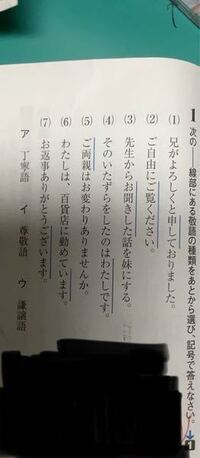 1 次の――線部にある敬語の種類をあとから選び、記号で答えなさい。
(1) 兄がよろしくと申しておりました。
(2) ご自由にご覧ください。
(3) 先生からお聞きした話を妹にする。
(4) そのいたずらをしたのはわたしです。
(5) ご両親はお変わりありませんか。
(6) わたしは、百貨店に勤めています。
(7) お返事ありがとうございます。
ア 丁寧語 イ 尊敬語 ウ 謙譲語
1